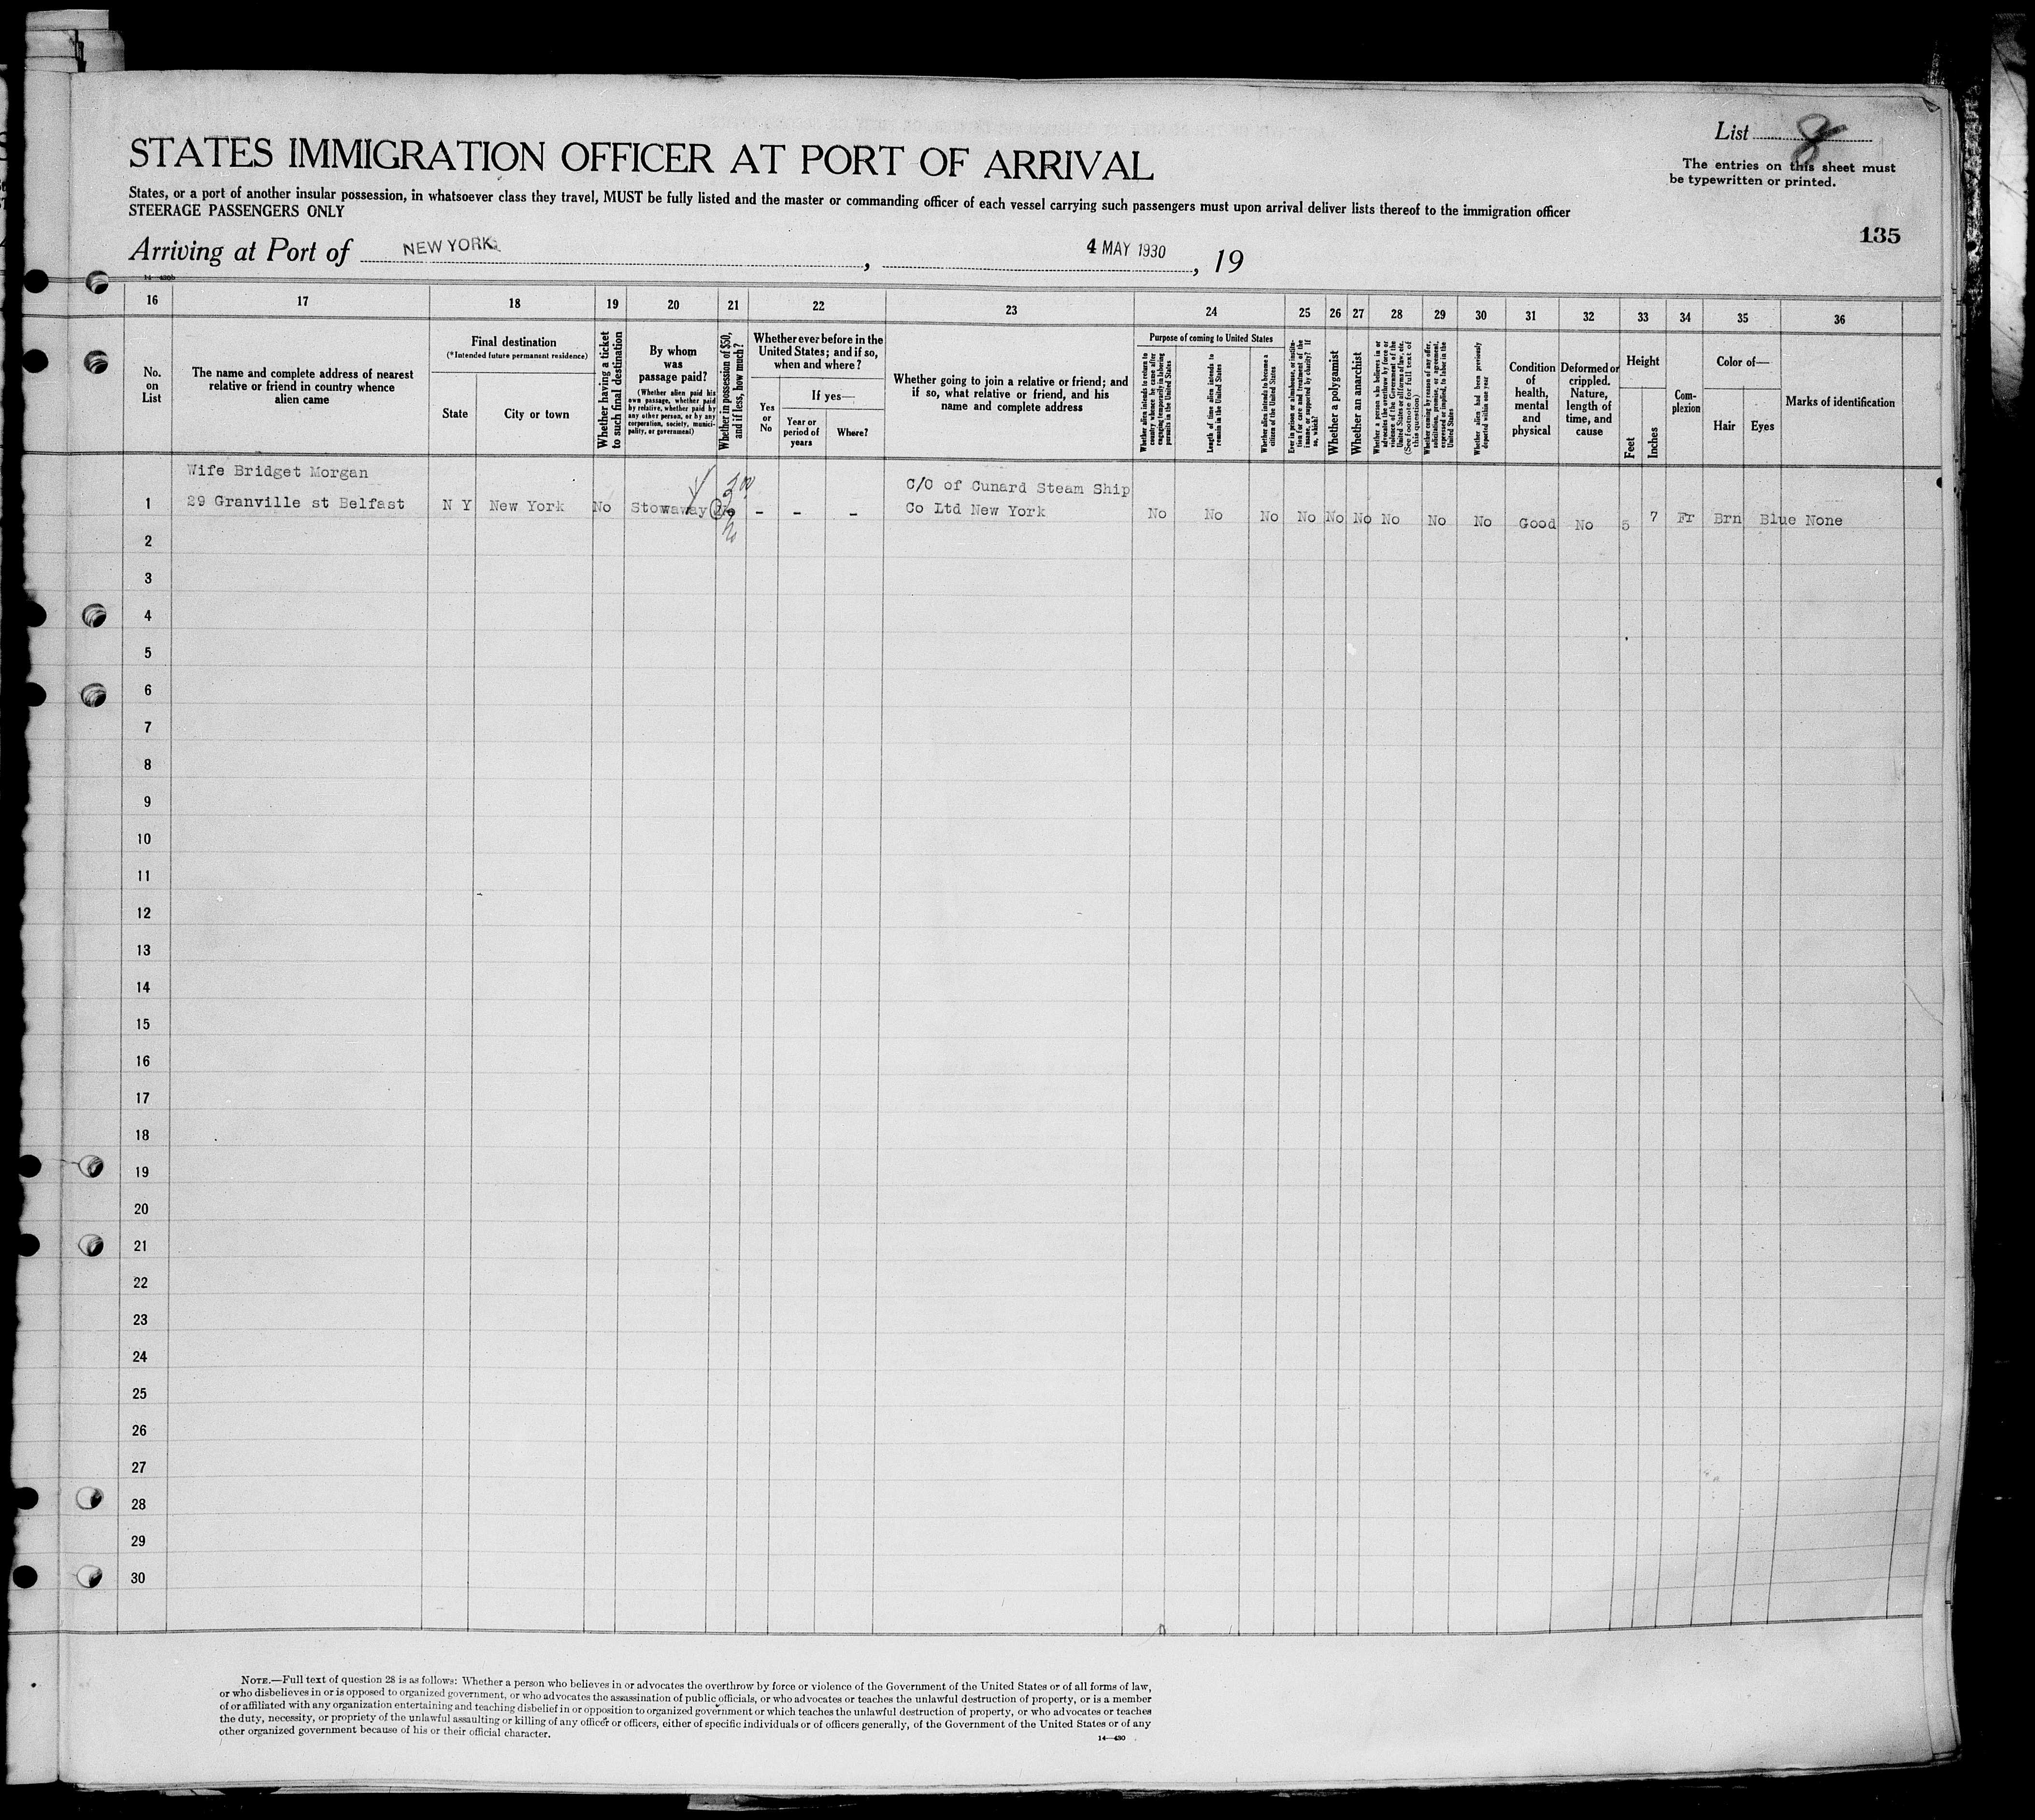 List 8
The entries on this sheet must
be typewritten or printed.
STATES IMMIGRATION OFFICER AT PORT OF ARRIVAL
States, or a port of another insular possession, in whatsoever class they travel, MUST be fully listed and the master or commanding officer of each vessel carrying such passengers must upon arrival deliver lists thereof to the immigration officer
STEERAGE PASSENGERS ONLY
135
Arriving at Port of NEW YORK, 4 MAY 1930, 19
14—430b
16 17 18 19 20 21 22 23 24 25 26 27 28 29 30 31 32 33 34 35 36
No.
on
List
The name and complete address of nearest
relative or friend in country whence
alien came
Final destination
(*Intended future permanent residence)
State
City or town
Whether having a ticket
to such final destination
By whom
was
passage paid?
(Whether alien paid his
own passage, whether paid
by relative, whether paid by
any other person, or by any
corporation, society, munici-
pality, or government)
Whether in possession of $50,
and if less, how much?
Whether ever before in the
United States; and if so,
when and where?
Yes
or
No
If yes—
Year or
period of
years
Where?
Whether going to join a relative or friend; and
if so, what relative or friend, and his
name and complete address
Purpose of coming to United States
Whether alien intends to return to
country whence he came after
engaging temporarily in laboring
pursuits in the United States
Length of time alien intends to
remain in the United States
Whether alien intends to become a
citizen of the United States
Ever in prison or almshouse, or institu-
tion for care and treatment of the
insane, or supported by charity? If
so, which?
Whether a polygamist
Whether an anarchist
Whether a person who believes in or
advocates the overthrow by force or
violence of the Government of the
United States or all forms of law, etc.
(See footnote for full text of
this question)
Whether coming by reason of any offer,
solicitation, promise, or agreement,
expressed or implied, to labor in the
United States
Whether alien had been previously
deported within one year
Condition
of
health,
mental
and
physical
Deformed or
crippled.
Nature,
length of
time, and
cause
Height
Feet
Inches
Com-
plexion
Color of—
Hair
Eyes
Marks of identification
Wife Bridget Morgan
C/O of Cunard Steam Ship
1 29 Granville st Belfast N Y New York No Stowaway No - - - Co Ltd New York No No No No No No No No No Good No 5 7 Fr Brn Blue None
2
3
4
5
6
7
8
9
10
11
12
13
14
15
16
17
18
19
20
21
22
23
24
25
26
27
28
29
30
NOTE.—Full text of question 28 is as follows: Whether a person who believes in or advocates the overthrow by force or violence of the Government of the United States or of all forms of law,
or who disbelieves in or is opposed to organized government, or who advocates the assassination of public officials, or who advocates or teaches the unlawful destruction of property, or is a member
of or affiliated with any organization entertaining and teaching disbelief in or opposition to organized government or which teaches the unlawful destruction of property, or who advocates or teaches
the duty, necessity, or propriety of the unlawful assaulting or killing of any officer or officers, either of specific individuals or of officers generally, of the Government of the United States or of any
other organized government because of his or their official character.
14—430